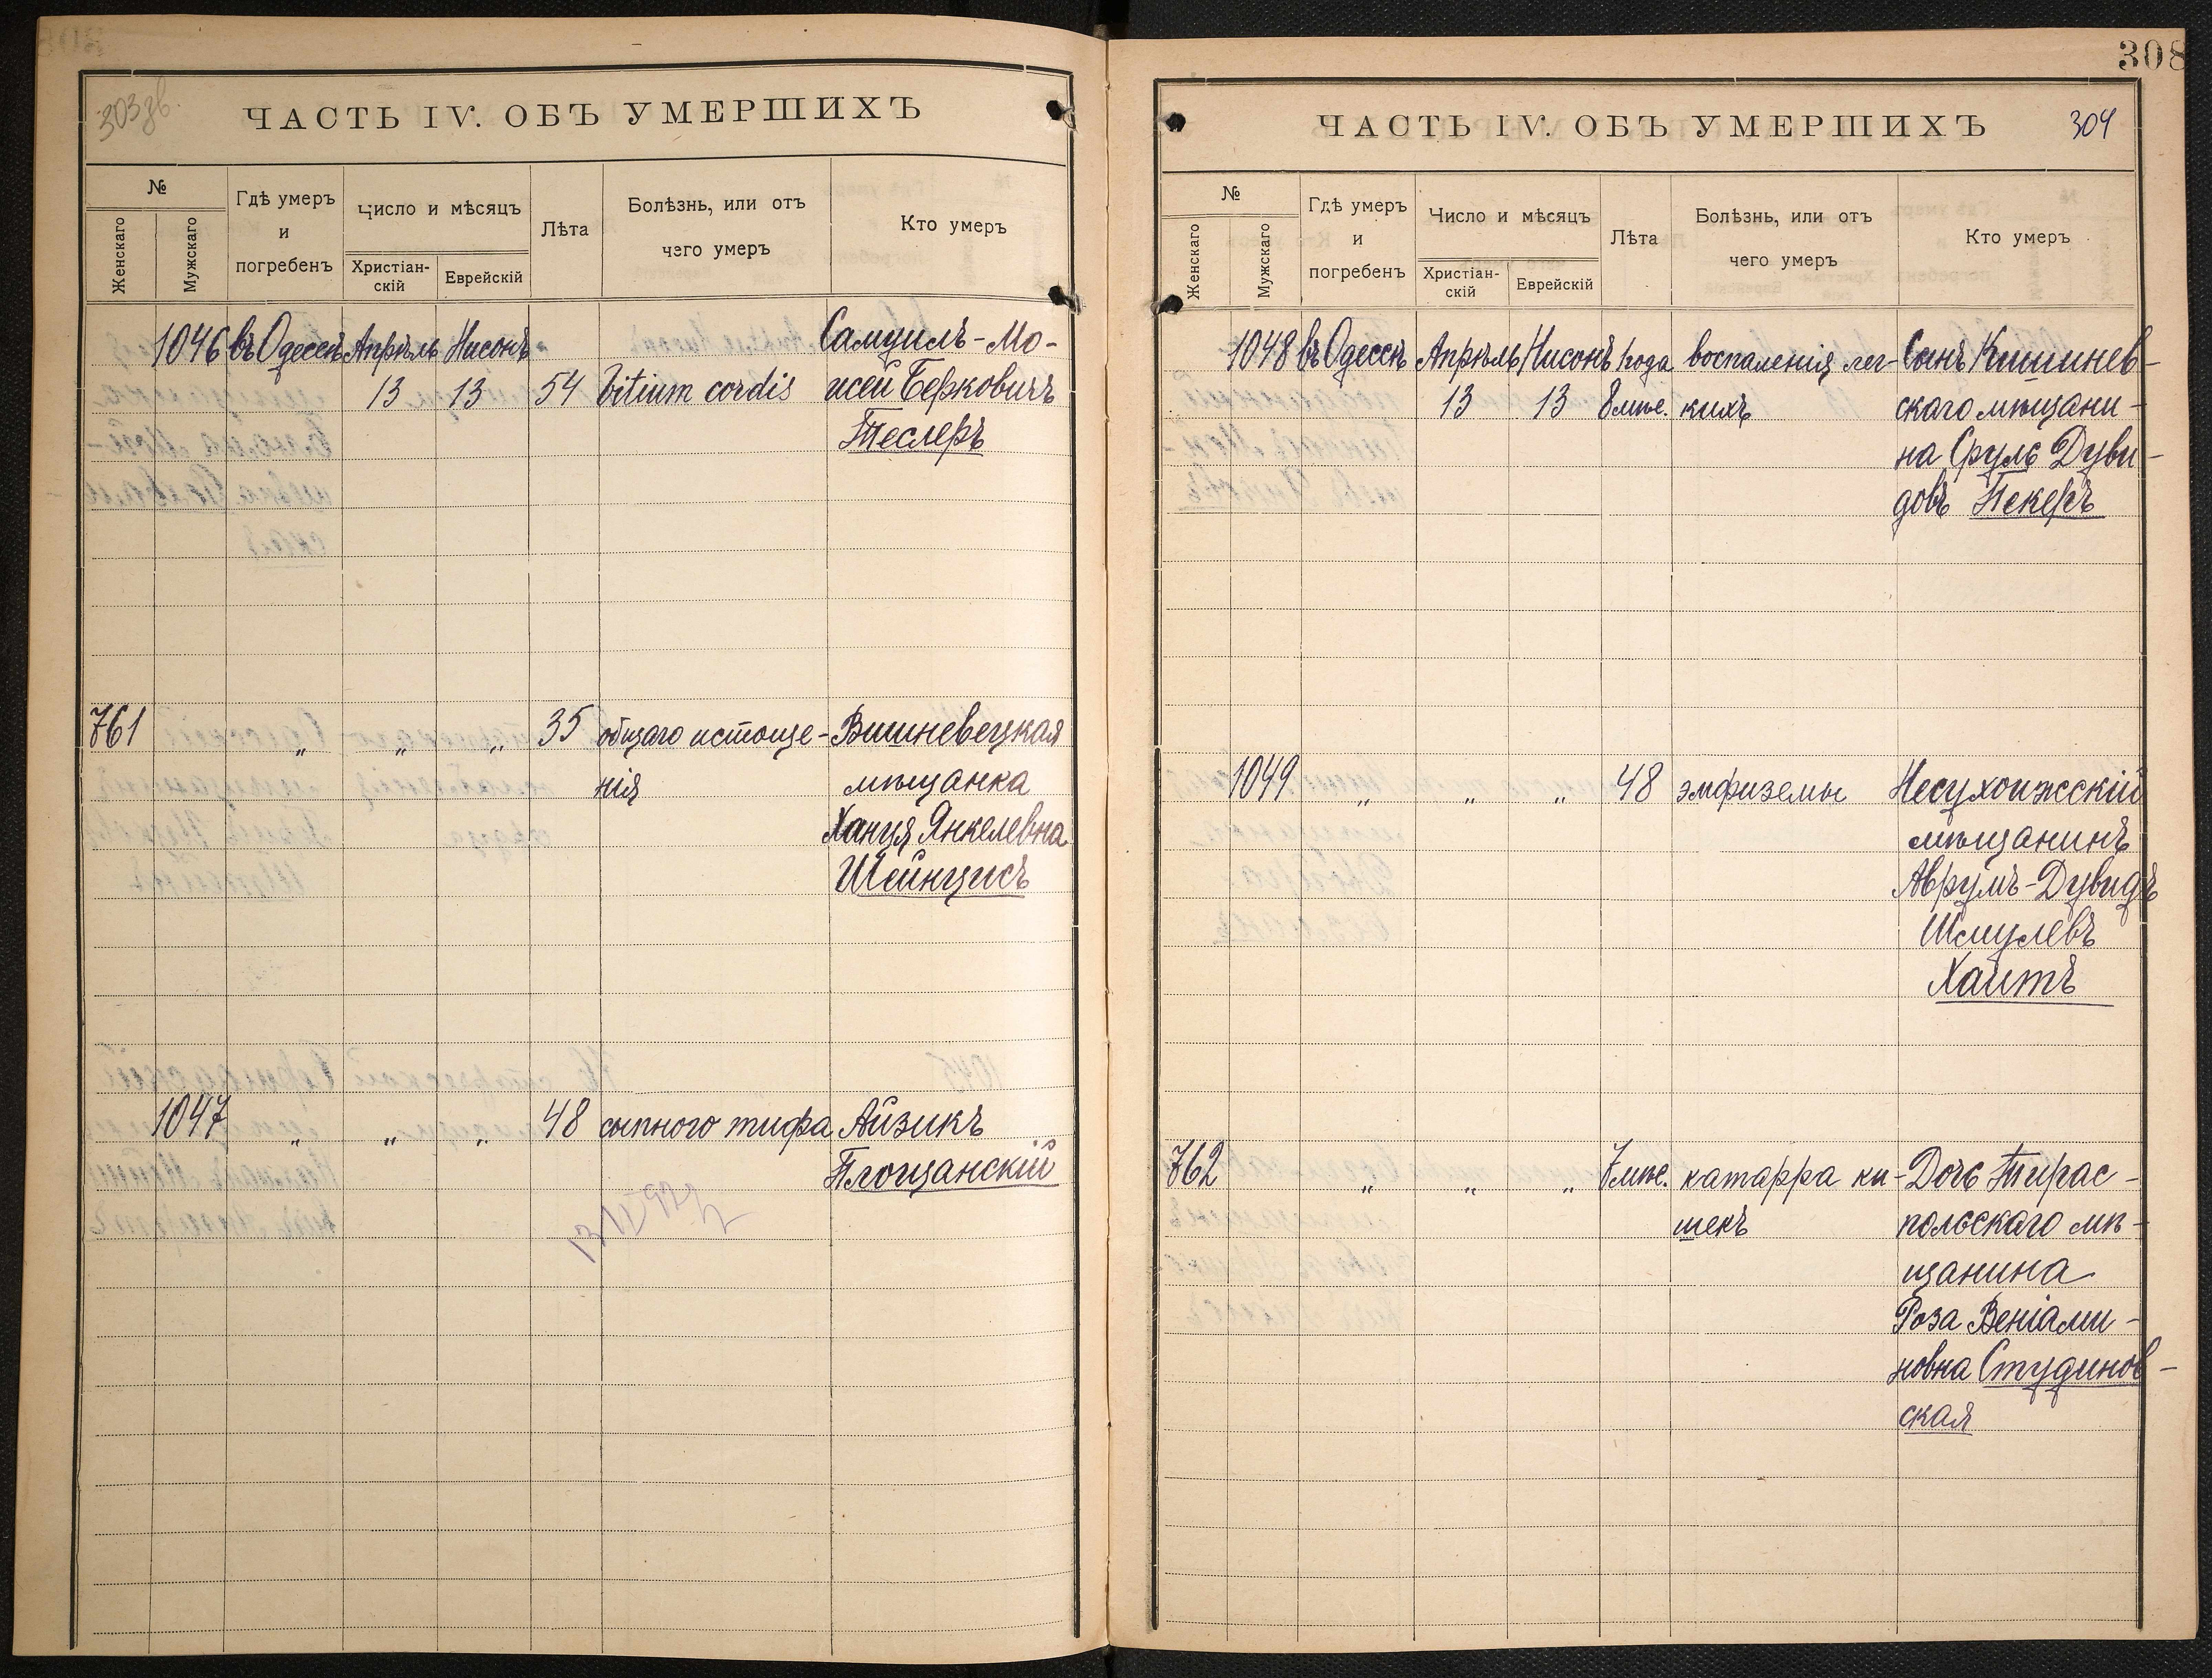 303 зв.
ЧАСТЬ IV. ОБЪ УМЕРШИХЪ
№
Женскаго
Мужскаго
Гдѣ умеръ
и
погребенъ
Число и мѣсяцъ
Христіан-
скій
Еврейскій
Лѣта
Болѣзнь, или отъ
чего умеръ
Кто умеръ
1046 въ Одессѣ Апрѣль Нисонъ Самуилъ-Мо-
13 13 54 Vitium cordis исей Берковичъ
Теслеръ
761 „ „ „ 35 общаго истоще- Вишневецкая
нія мѣщанка
Ханця Янкелевна
Шейнцисъ
1047 „ „ „ 48 сыпного тифа Айзикъ
Площанскій
308
ЧАСТЬ IV. ОБЪ УМЕРШИХЪ
304
№
Женскаго
Мужскаго
Гдѣ умеръ
и
погребенъ
Число и мѣсяцъ
Христіан-
скій
Еврейскій
Лѣта
Болѣзнь, или отъ
чего умеръ
Кто умеръ
1048 въ Одессѣ Апрѣль Нисонъ 1 года воспаленія лег- Сынъ Кишинев-
13 13 8 мѣс. кихъ скаго мѣщани-
на Сруль Дуви-
довъ Пекеръ
1049 „ „ „ 48 эмфиземы Несухоижсскій
мѣщанинъ
Аврумъ-Дувидъ
Шмулевъ
Хаитъ
762 „ „ „ 7 мѣс. катарра ки- Дочь Тирас-
шекъ польскаго мѣ-
щанина
Роза Веніами-
новна Студинов-
ская